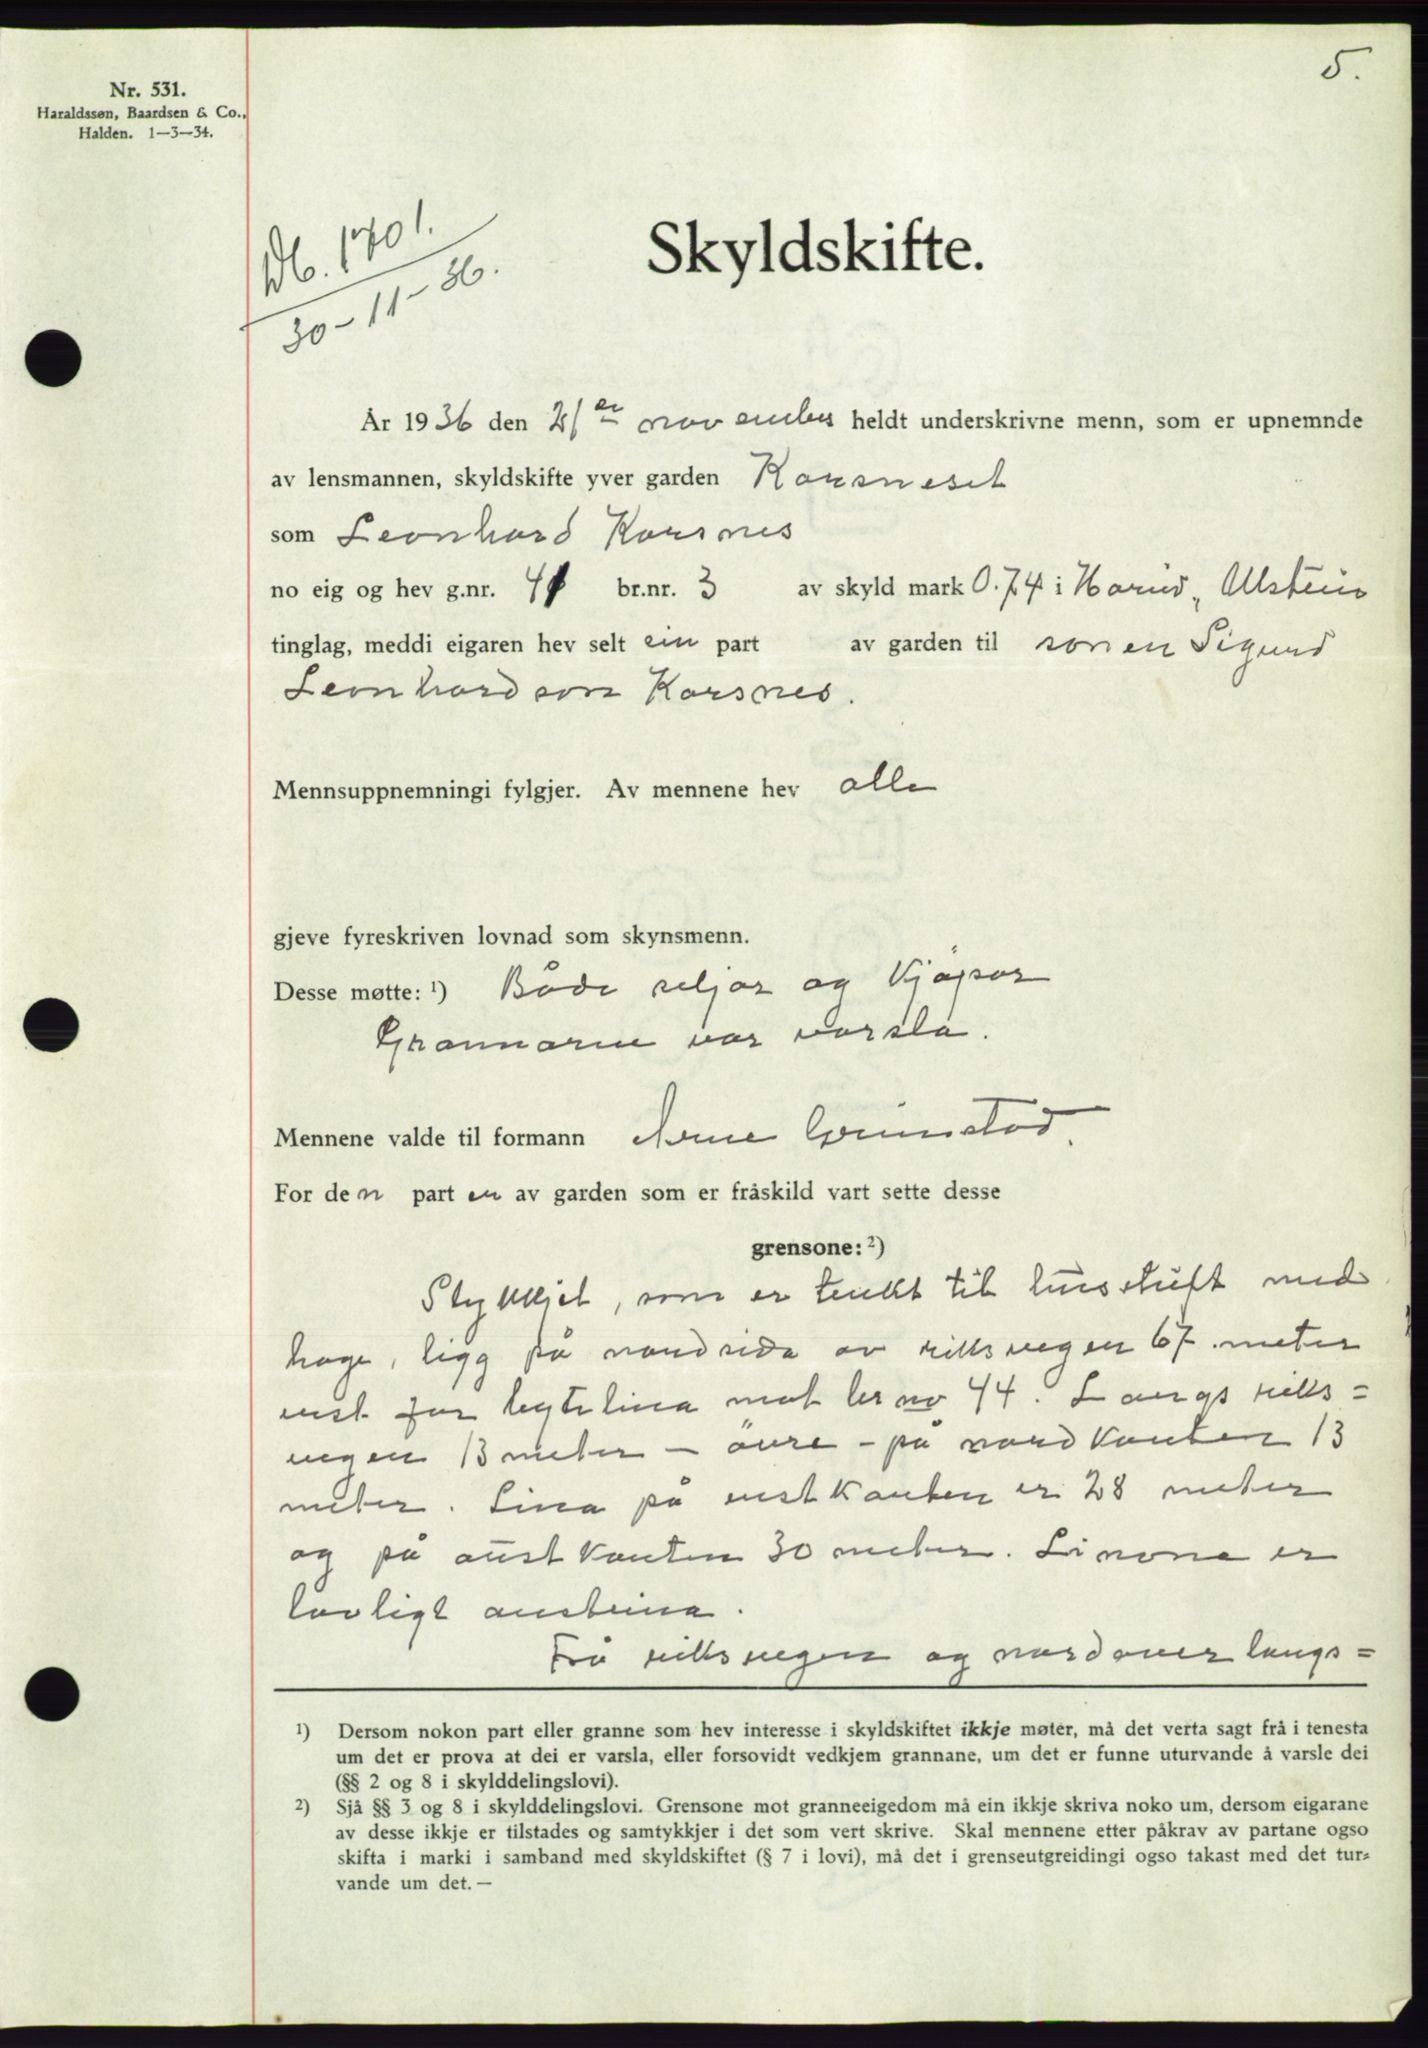 5.
Nr. 531.
Haraldssøn, Baardsen & Co.,
Halden. 1—3—34.
Db. 1701.
30-11-36.
Skyldskifte.
År 1936 den 21 november heldt underskrivne menn, som er upnemnde
av lensmannen, skyldskifte yver garden Korsneset
som Leonhard Korsnes
no eig og hev g.nr. br.nr. 3 av skyld mark 0.74 i Hareid, Ulstein
tinglag, meddi eigaren hev selt ein part av garden til sonen Sigurd
Leonhardson Korsnes.
Mennsuppnemningi fylgjer. Av mennene hev alle
gjeve fyreskriven lovnad som skynsmenn.
Desse møtte: ¹) Både seljar og kjøpar
Grannarne var varsla.
Mennene valde til formann Arne Grimstad.
For den parten av garden som er fråskild vart sette desse
grensone: ²)
Stykkjet, som er tenkt til hustuft med
hage, ligg på nordsida av riksvegen 67 meter
vest for bytelina mot br no 44. Langs riks=
vegen 13 meter – øvre – på nordkanten 13
meter. Lina på vestkanten er 28 meter
og på austkanten 30 meter. Linone er
lovligt ansteina.
Frå riksvegen og nordover langs=
¹) Dersom nokon part eller granne som hev interesse i skyldskiftet ikkje møter, må det verta sagt frå i tenesta
um det er prova at dei er varsla, eller forsovidt vedkjem grannane, um det er funne uturvande å varsle dei
(§§ 2 og 8 i skylddelingslovi).
²) Sjå §§ 3 og 8 i skylddelingslovi. Grensone mot granneeigedom må ein ikkje skriva noko um, dersom eigarane
av desse ikkje er tilstades og samtykkjer i det som vert skrive. Skal mennene etter påkrav av partane ogso
skifta i marki i samband med skyldskiftet (§ 7 i lovi), må det i grenseutgreidingi ogso takast med det tur=
vande um det. —